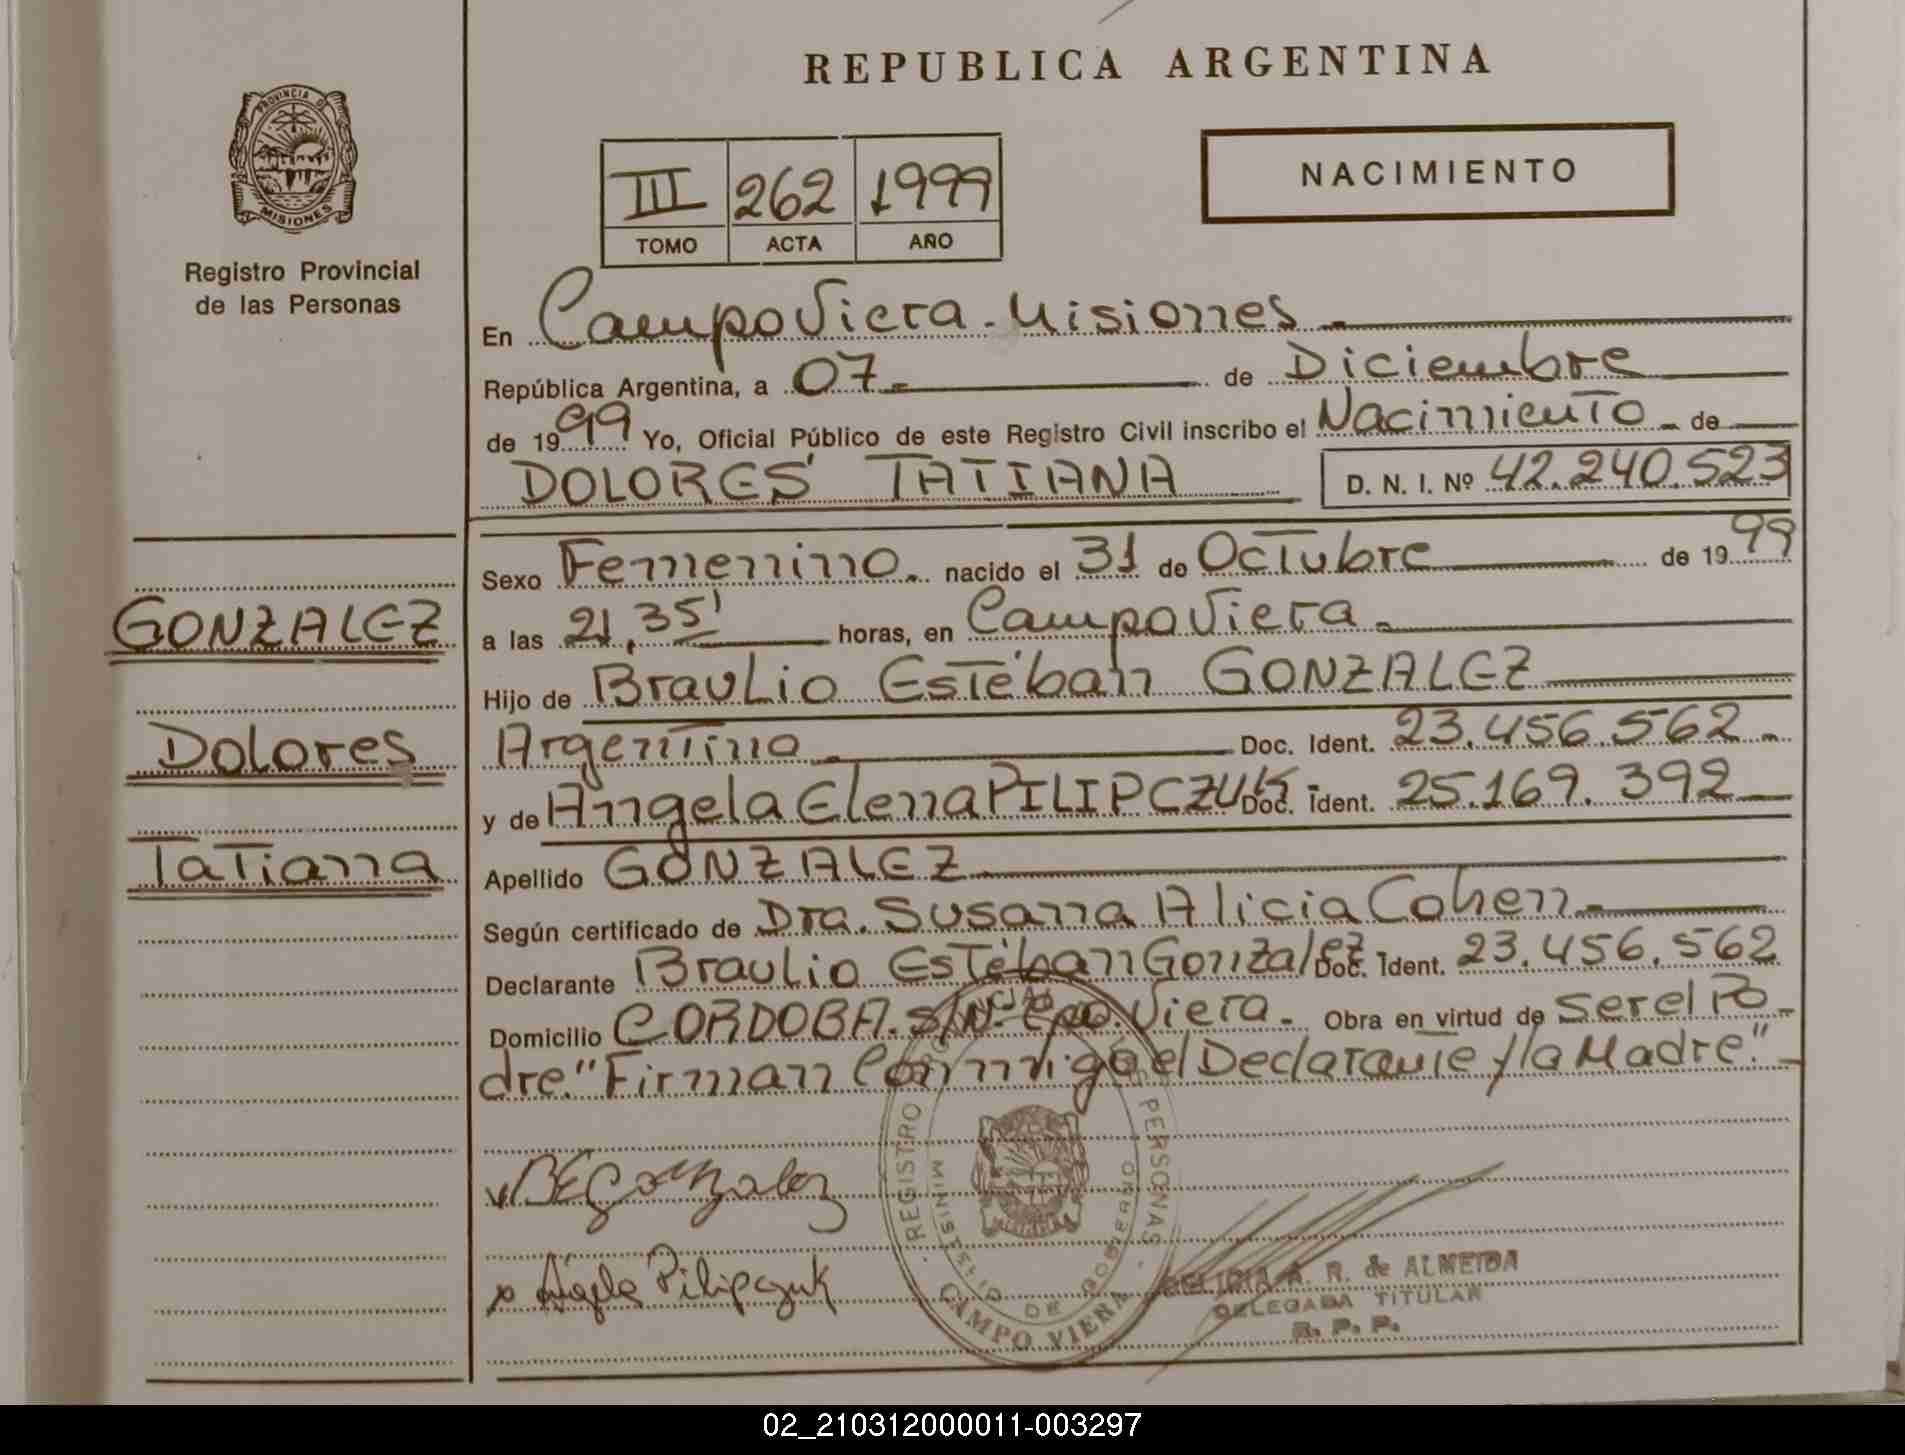 REPUBLICA ARGENTINA
PROVINCIA DE
MISIONES
Registro Provincial
de las Personas
NACIMIENTO
III 262 1999
TOMO ACTA AÑO
En Campo Viera - Misiones -
República Argentina, a 07 - de Diciembre
de 1999 Yo, Oficial Público de este Registro Civil inscribo el Nacimiento - de
DOLORES TATIANA D. N. I. Nº 42.240.523
Sexo Femenino. nacido el 31 de Octubre de 1999
a las 21,35' horas, en Campo Viera -
Hijo de Braulio Estéban GONZALEZ
Argentino - Doc. Ident. 23.456.562 -
y de Angela Elena PILIPCZUK - Doc. Ident. 25.169.392
Apellido GONZALEZ
Según certificado de Dra. Susana Alicia Cohen -
Declarante Braulio Estéban Gonzalez - Doc. Ident. 23.456.562
Domicilio CORDOBA. S/Nº Cpo. Viera - Obra en virtud de ser el Pa-
dre. "Firman Conmigo el Declarante y la Madre." -
GONZALEZ
Dolores
Tatiana
BEGonzalez
x Angela Pilipczuk
REGISTRO PERSONAS
MINISTERIO DE GOBIERNO
CAMPO VIERA
A. R. de ALMEIDA
DELEGADA TITULAR
R. P. P.
02_210312000011-003297